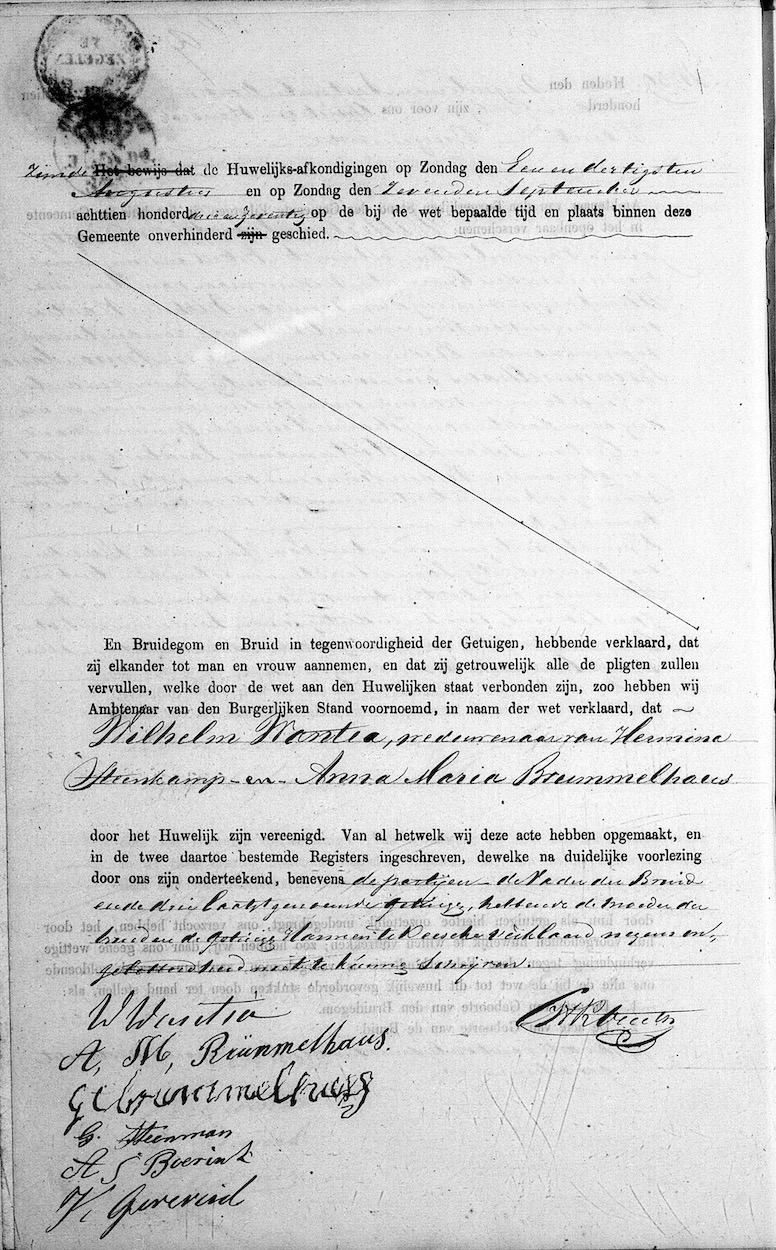 zijnde Het bewijs dat de Huwelijks-afkondigingen op Zondag den Een en dertigsten
Augustus en op Zondag den Zevenden September
achttien honderd drie en zeventig op de bij de wet bepaalde tijd en plaats binnen deze
Gemeente onverhinderd zijn geschied.
En Bruidegom en Bruid in tegenwoordigheid der Getuigen, hebbende verklaard, dat
zij elkander tot man en vrouw aannemen, en dat zij getrouwelijk alle de pligten zullen
vervullen, welke door de wet aan den Huwelijken staat verbonden zijn, zoo hebben wij
Ambtenaar van den Burgerlijken Stand voornoemd, in naam der wet verklaard, dat
Wilhelm Wantia, weduwenaar van Hermina
Steenkamp en Anna Maria Brummelhaus
door het Huwelijk zijn vereenigd. Van al hetwelk wij deze acte hebben opgemaakt, en
in de twee daartoe bestemde Registers ingeschreven, dewelke na duidelijke voorlezing
door ons zijn onderteekend, benevens de partijen de Vader der Bruid
en de drie laatstgenoemde getuigen, hebbende de moeder der
bruid en de getuige Harmen te verklaard wegens on-
geletterdheid niet te kunnen schrijven.
W Wantia
A, M, Brümmelhaus.
G. Steenman
A J Boerink